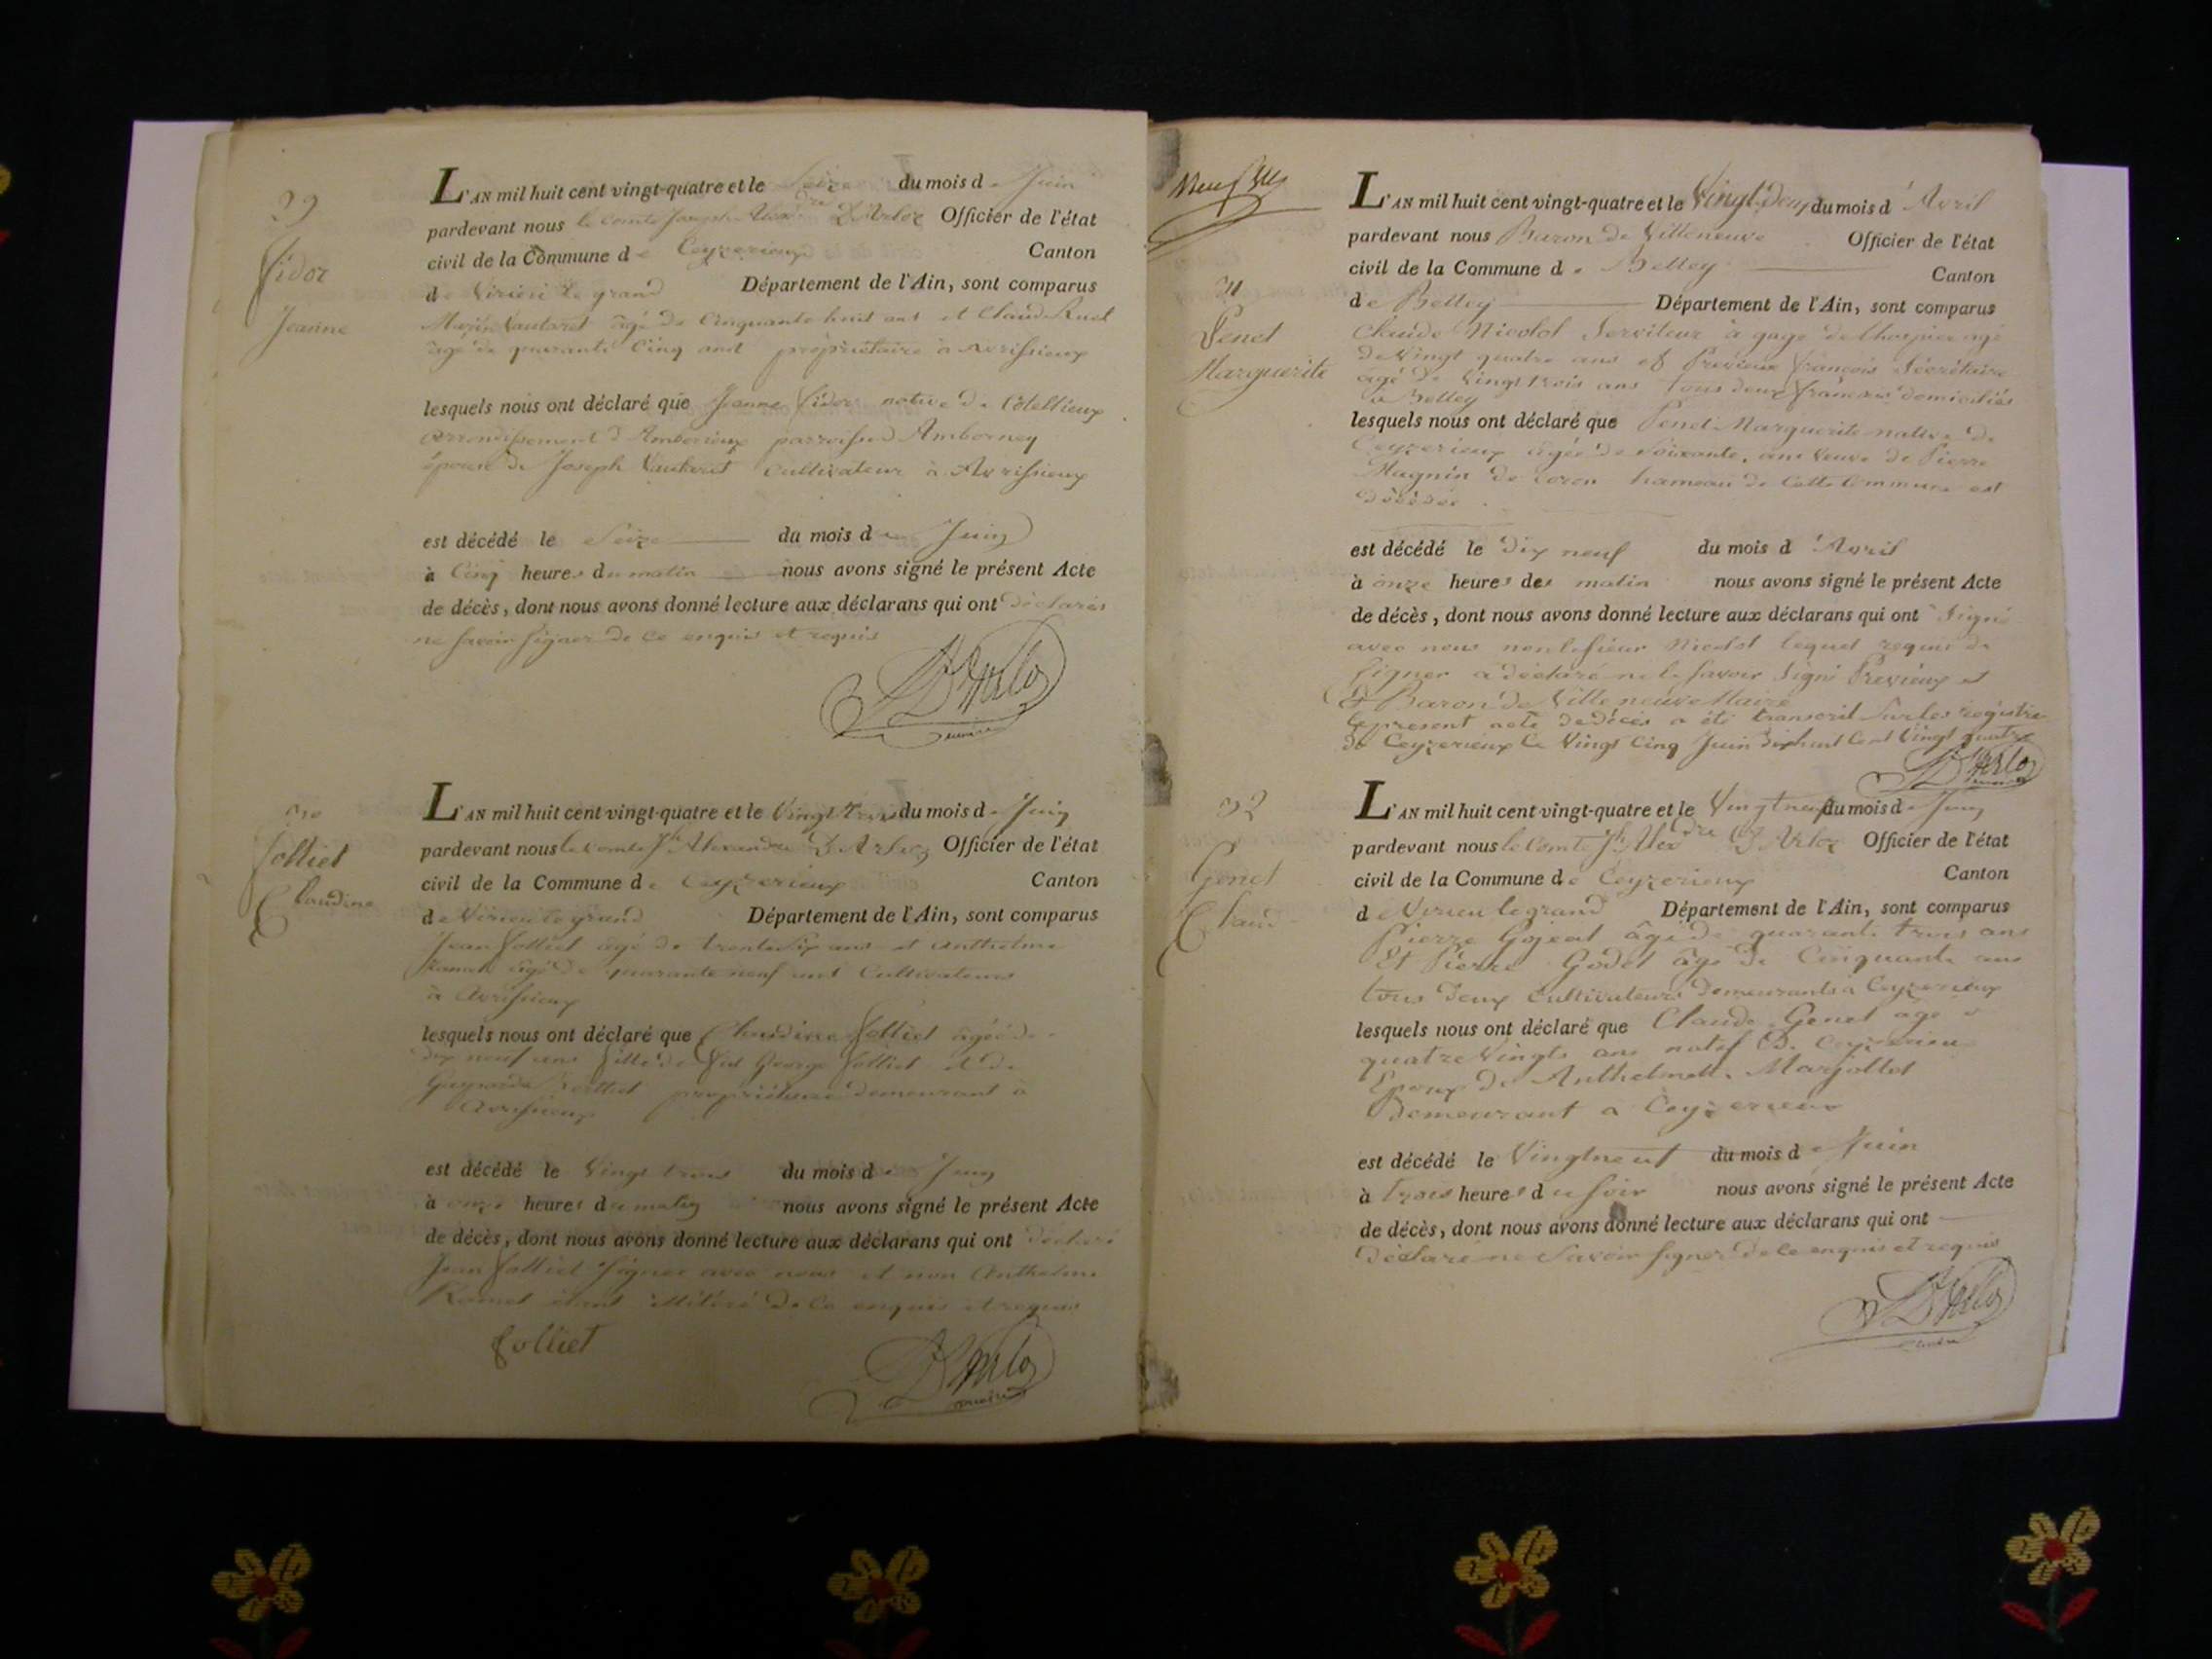 29
Fidor
Jeanne
L'AN mil huit cent vingt-quatre et le Seize du mois de Juin
pardevant nous le comte Joseph Alexdre D'Arloz Officier de l'état
civil de la Commune de Ceyzerieux Canton
de Virieu le grand Département de l'Ain, sont comparus
Marin Vautaret âgé de Cinquante huit ans et Claude Ruet
âgé de quarante Cinq ans propriétaire à Avrissieux
lesquels nous ont déclaré que Jeanne Fidor native de
arrondissement d'Amberieux parroisse d'Amborney
épouse de Joseph Vautaret cultivateur à Avrissieux
est décédé le Seize du mois de Juin
à Cinq heures du matin nous avons signé le présent Acte
de décès, dont nous avons donné lecture aux déclarans qui ont déclarés
ne savoir signer de ce enquis et requis
D'Arloz
maire
30
Folliet
Claudine
L'AN mil huit cent vingt-quatre et le Vingt trois du mois de Juin
pardevant nous le comte Jh Alexandre D'Arloz Officier de l'état
civil de la Commune de Ceyzerieux Canton
de Virieu le grand Département de l'Ain, sont comparus
Jean Folliet âgé de trente Six ans et Anthelme
Ramet âgé de quarante neuf ans Cultivateurs
à Avrissieux
lesquels nous ont déclaré que Claudine Folliet âgée de
dix neuf ans fille de George Folliet et de
Berthet propriétaire demeurant à
Avrissieux
est décédé le Vingt trois du mois de Juin
à onze heures du matin nous avons signé le présent Acte
de décès, dont nous avons donné lecture aux déclarans qui ont déclaré
Jean Folliet signer avec nous et non Anthelme
Ramet étant illitéré de ce enquis et requis
folliet
D'Arloz
maire
31
Penet
Marguerite
L'AN mil huit cent vingt-quatre et le Vingt Deux du mois d'Avril
pardevant nous Baron de Villeneuve Officier de l'état
civil de la Commune de Belley Canton
de Belley Département de l'Ain, sont comparus
Claude Nicolot Serviteur à gage de l'hospice agé
de Vingt quatre ans et Prévieux François Sécrétaire
agé de Vingt trois ans tous deux français domiciliés
à Belley
lesquels nous ont déclaré que Penet Marguerite native de
Ceyzerieux agée de Soixante ans Veuve de Pierre
Magnin de Coron hameau de Cette Commune est
décédée
est décédé le Dix neuf du mois d'Avril
à onze heures des matin nous avons signé le présent Acte
de décès, dont nous avons donné lecture aux déclarans qui ont Signé
avec nous non le sieur Nicolot lequel requis de
signer a déclaré ne le savoir Signé Prévieux et
Baron de Villeneuve Maire
Le present acte de décès a été transcrit Sur les registre
de Ceyzerieux Le Vingt Cinq Juin Dix huit Cent Vingt quatre
D'Arloz
32
Genet
Claude
L'AN mil huit cent vingt-quatre et le Vingt neuf du mois de Juin
pardevant nous le Comte Jh Alexdre D'Arloz Officier de l'état
civil de la Commune de Ceyzerieux Canton
de Virieu le grand Département de l'Ain, sont comparus
Pierre Gojeat âgé de quarante trois ans
Et Pierre Godet âgé de Cinquante ans
tous Deux Cultivateurs Demeurants à Ceyzerieux
lesquels nous ont déclaré que Claude Genet agé de
quatre Vingts ans natif de Ceyzerieu
Epoux de Anthelmette Marjollet
Demeurant à Ceyzerieux
est décédé le Vingt neuf du mois de Juin
à trois heures du soir nous avons signé le présent Acte
de décès, dont nous avons donné lecture aux déclarans qui ont
déclaré ne Savoir signer de ce enquis et requis
D'Arloz
maire